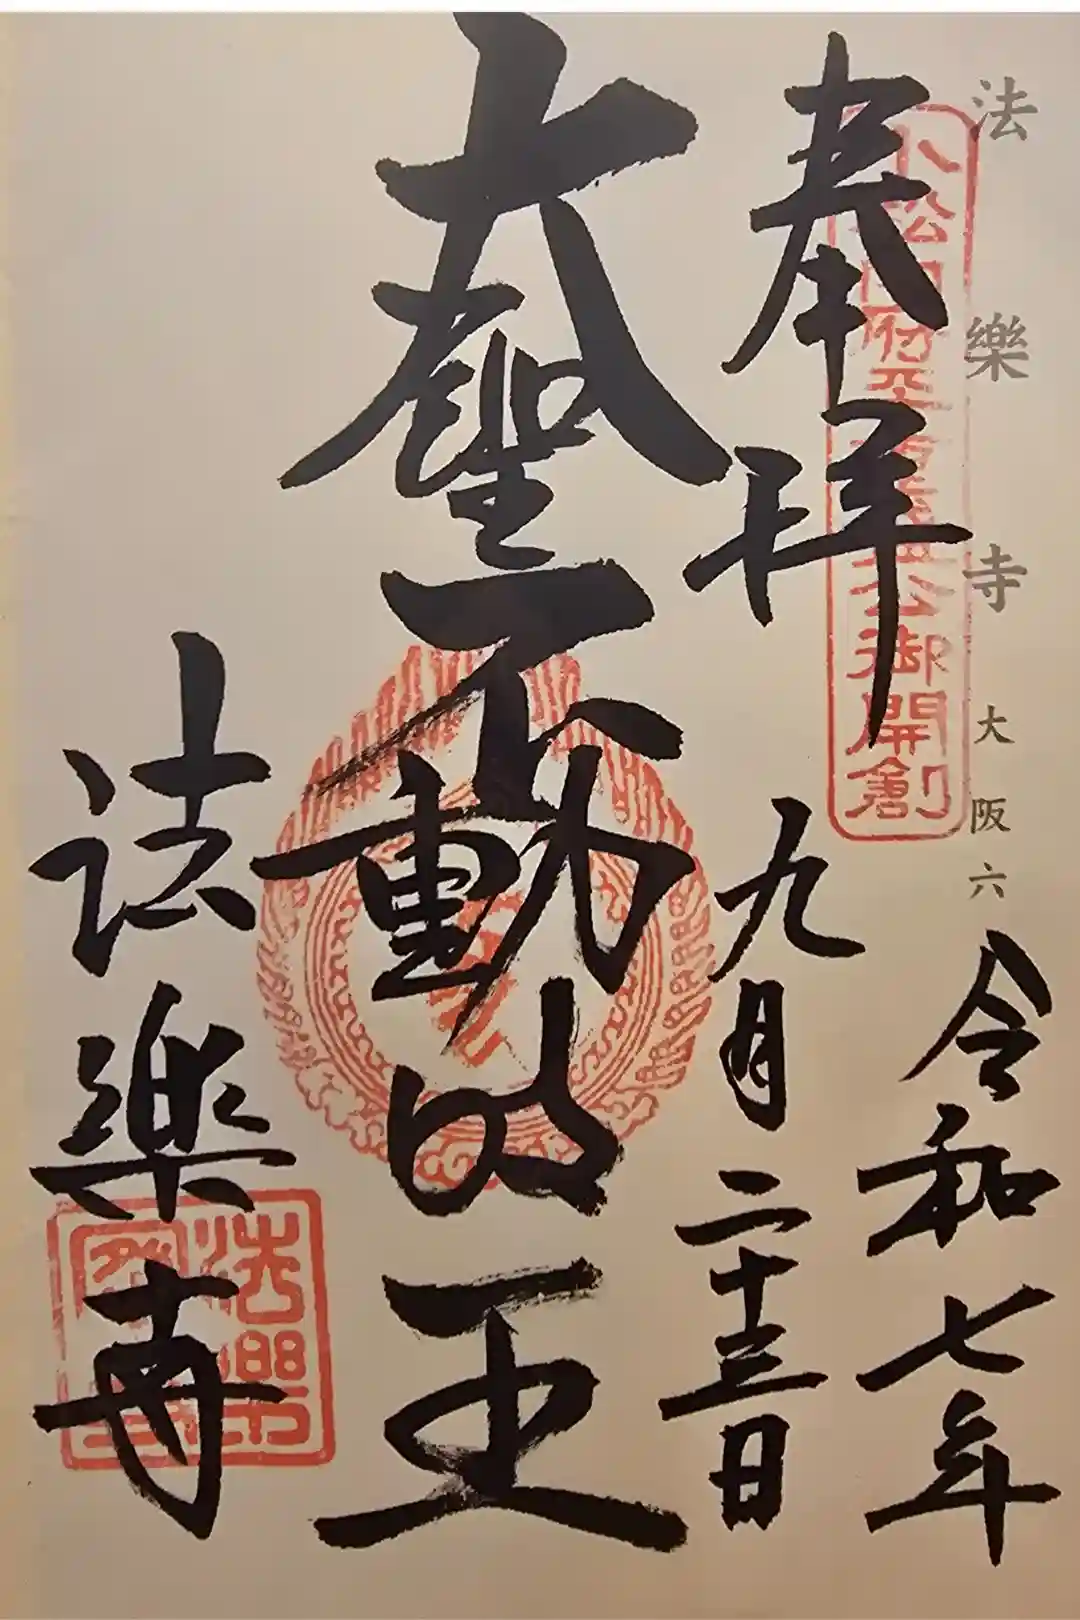 法樂寺 大阪六
奉拝
令和七年
九月二十三日
大聖不動明王
法樂寺
小松内府平重盛公御開創
法樂